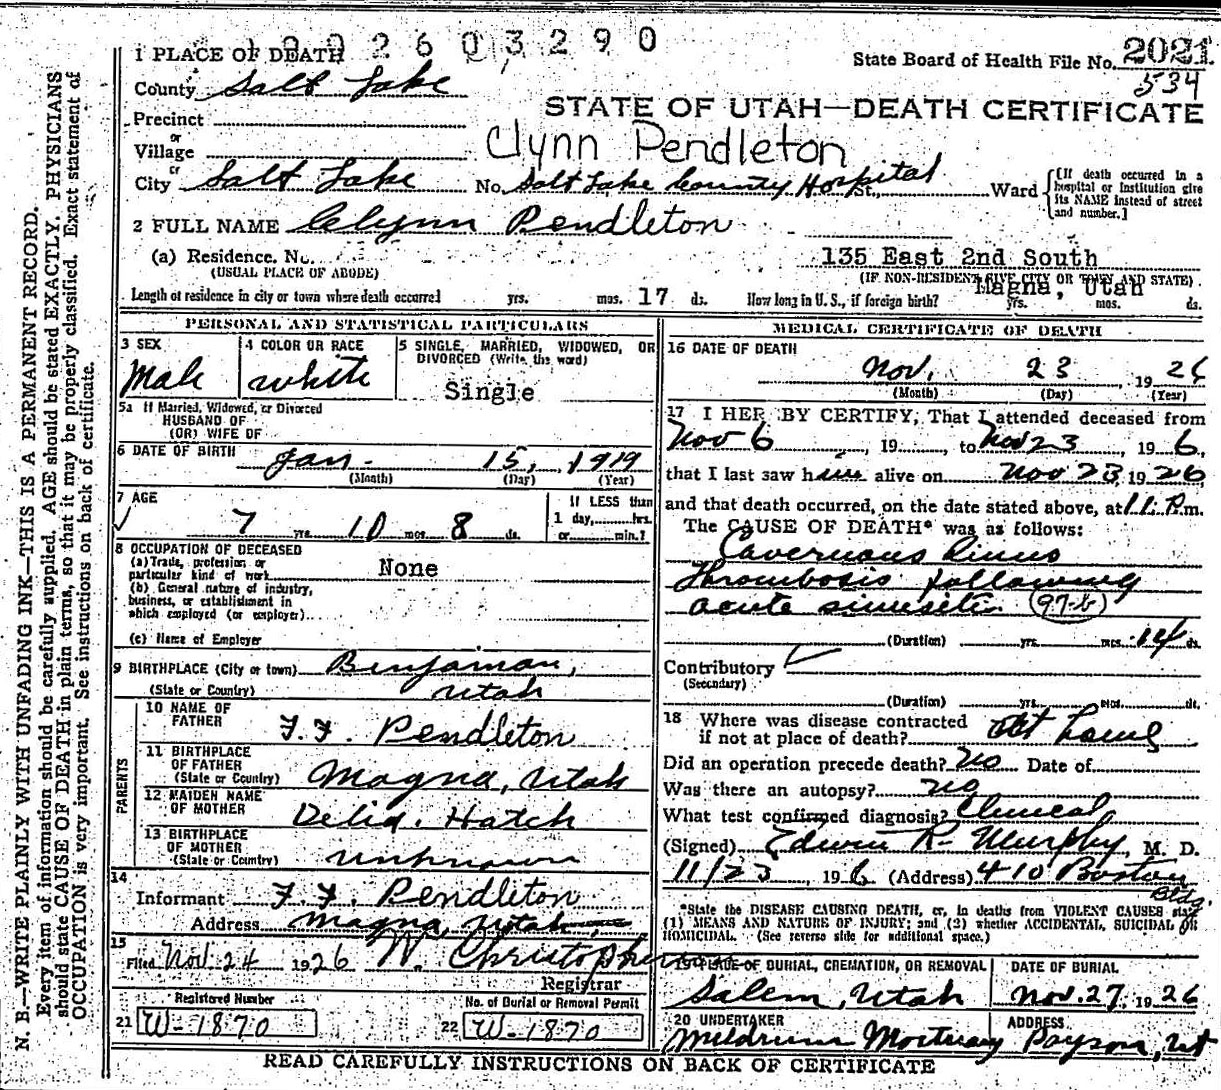 1002603290
State Board of Health File No. 2021
534
1 PLACE OF DEATH
County Salt Lake
STATE OF UTAH—DEATH CERTIFICATE
Precinct
or
Village
Clynn Pendleton
or
City Salt Lake No. Salt Lake County Hospital St., Ward
[If death occurred in a hospital or institution give its NAME instead of street and number.]
2 FULL NAME Clynn Pendleton
(a) Residence. No. 135 East 2nd South
(USUAL PLACE OF ABODE) (IF NON-RESIDENT GIVE CITY OR TOWN AND STATE)
Magna, Utah
Length of residence in city or town where death occurred yrs. mos. 17 ds. How long in U. S., if foreign birth? yrs. mos. ds.
PERSONAL AND STATISTICAL PARTICULARS
3 SEX
Male
4 COLOR OR RACE
white
5 SINGLE, MARRIED, WIDOWED, OR
DIVORCED (Write the word)
Single
5a If Married, Widowed, or Divorced
HUSBAND OF
(OR) WIFE OF
6 DATE OF BIRTH Jan. 15, 1919
(Month) (Day) (Year)
7 AGE
7 yrs. 10 mos. 8 ds.
If LESS than
1 day, hrs.
or min.?
8 OCCUPATION OF DECEASED
(a) Trade, profession or
particular kind of work None
(b) General nature of industry,
business, or establishment in
which employed (or employer)
(c) Name of Employer
9 BIRTHPLACE (City or town) Benjaman,
(State or Country) Utah
PARENTS
10 NAME OF
FATHER F. F. Pendleton
11 BIRTHPLACE
OF FATHER
(State or Country) Magna, Utah
12 MAIDEN NAME
OF MOTHER Delia. Hatch
13 BIRTHPLACE
OF MOTHER
(State or Country) unknown
14
Informant F. F. Pendleton
Address Magna, Utah
15
Filed Nov. 24 1926 W. Christopherson
Registrar
Registered Number
21 W-1870
No. of Burial or Removal Permit
22 W-1870
MEDICAL CERTIFICATE OF DEATH
16 DATE OF DEATH
Nov. 23, 1926
(Month) (Day) (Year)
17 I HEREBY CERTIFY, That I attended deceased from
Nov 6, 19 , to Nov 23 1926,
that I last saw him alive on Nov 23 1926
and that death occurred, on the date stated above, at 11 P.m.
The CAUSE OF DEATH* was as follows:
Cavernous Sinus
thrombosis following
acute sinusitis (97-b)
(Duration) yrs. mos. 14 ds.
Contributory
(Secondary)
(Duration) yrs. mos. ds.
18 Where was disease contracted
if not at place of death? At home
Did an operation precede death? No Date of
Was there an autopsy? no
What test confirmed diagnosis? Clinical
(Signed) Edwin R. Murphy, M. D.
11/23, 1926 (Address) 410 Boston
Bldg.
*State the DISEASE CAUSING DEATH, or, in deaths from VIOLENT CAUSES state
(1) MEANS AND NATURE OF INJURY; and (2) whether ACCIDENTAL, SUICIDAL OR
HOMICIDAL. (See reverse side for additional space.)
19 PLACE OF BURIAL, CREMATION, OR REMOVAL
Salem, Utah
DATE OF BURIAL
Nov. 27, 1926
20 UNDERTAKER
Meldrum Mortuary
ADDRESS
Payson, Ut
READ CAREFULLY INSTRUCTIONS ON BACK OF CERTIFICATE
N. B.—WRITE PLAINLY WITH UNFADING INK—THIS IS A PERMANENT RECORD.
Every item of information should be carefully supplied. AGE should be stated EXACTLY. PHYSICIANS
should state CAUSE OF DEATH in plain terms, so that it may be properly classified. Exact statement of
OCCUPATION is very important. See instructions on back of certificate.